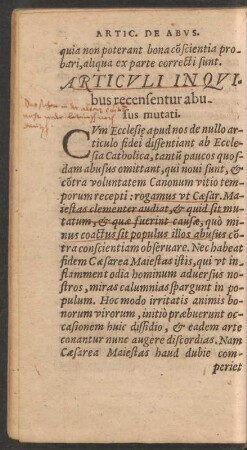 ARTIC. DE ABVS.
quia non poterant bona cōscientia pro-
bari, aliqua ex parte correcti sunt.
ARTICVLI IN QVI
bus recensentur abu-
sus mutati.
CVm Ecclesiæ apud nos de nullo ar-
ticulo fidei dissentiant ab Eccle-
sia Catholica, tantū paucos quos-
dam abusus omittant, qui noui sunt, &
cōtra voluntatem Canonum vitio tem-
porum recepti: rogamus vt Cæsar. Ma-
iestas clementer audiat, & quid sit mu-
tatum, & quæ fuerint causæ, quò mi-
nus coactus sit populus illos abusus cō-
tra conscientiam obseruare. Nec habeat
fidem Cæsarea Maiestas istis, qui vt in-
flamment odia hominum aduersus no-
stros, miras calumnias spargunt in po-
pulum. Hoc modo irritatis animis bo-
norum virorum, initiò præbuerunt oc-
casionem huic dissidio, & eadem arte
conantur nunc augere discordias. Nam
Cæsarea Maiestas haud dubie com-
periet